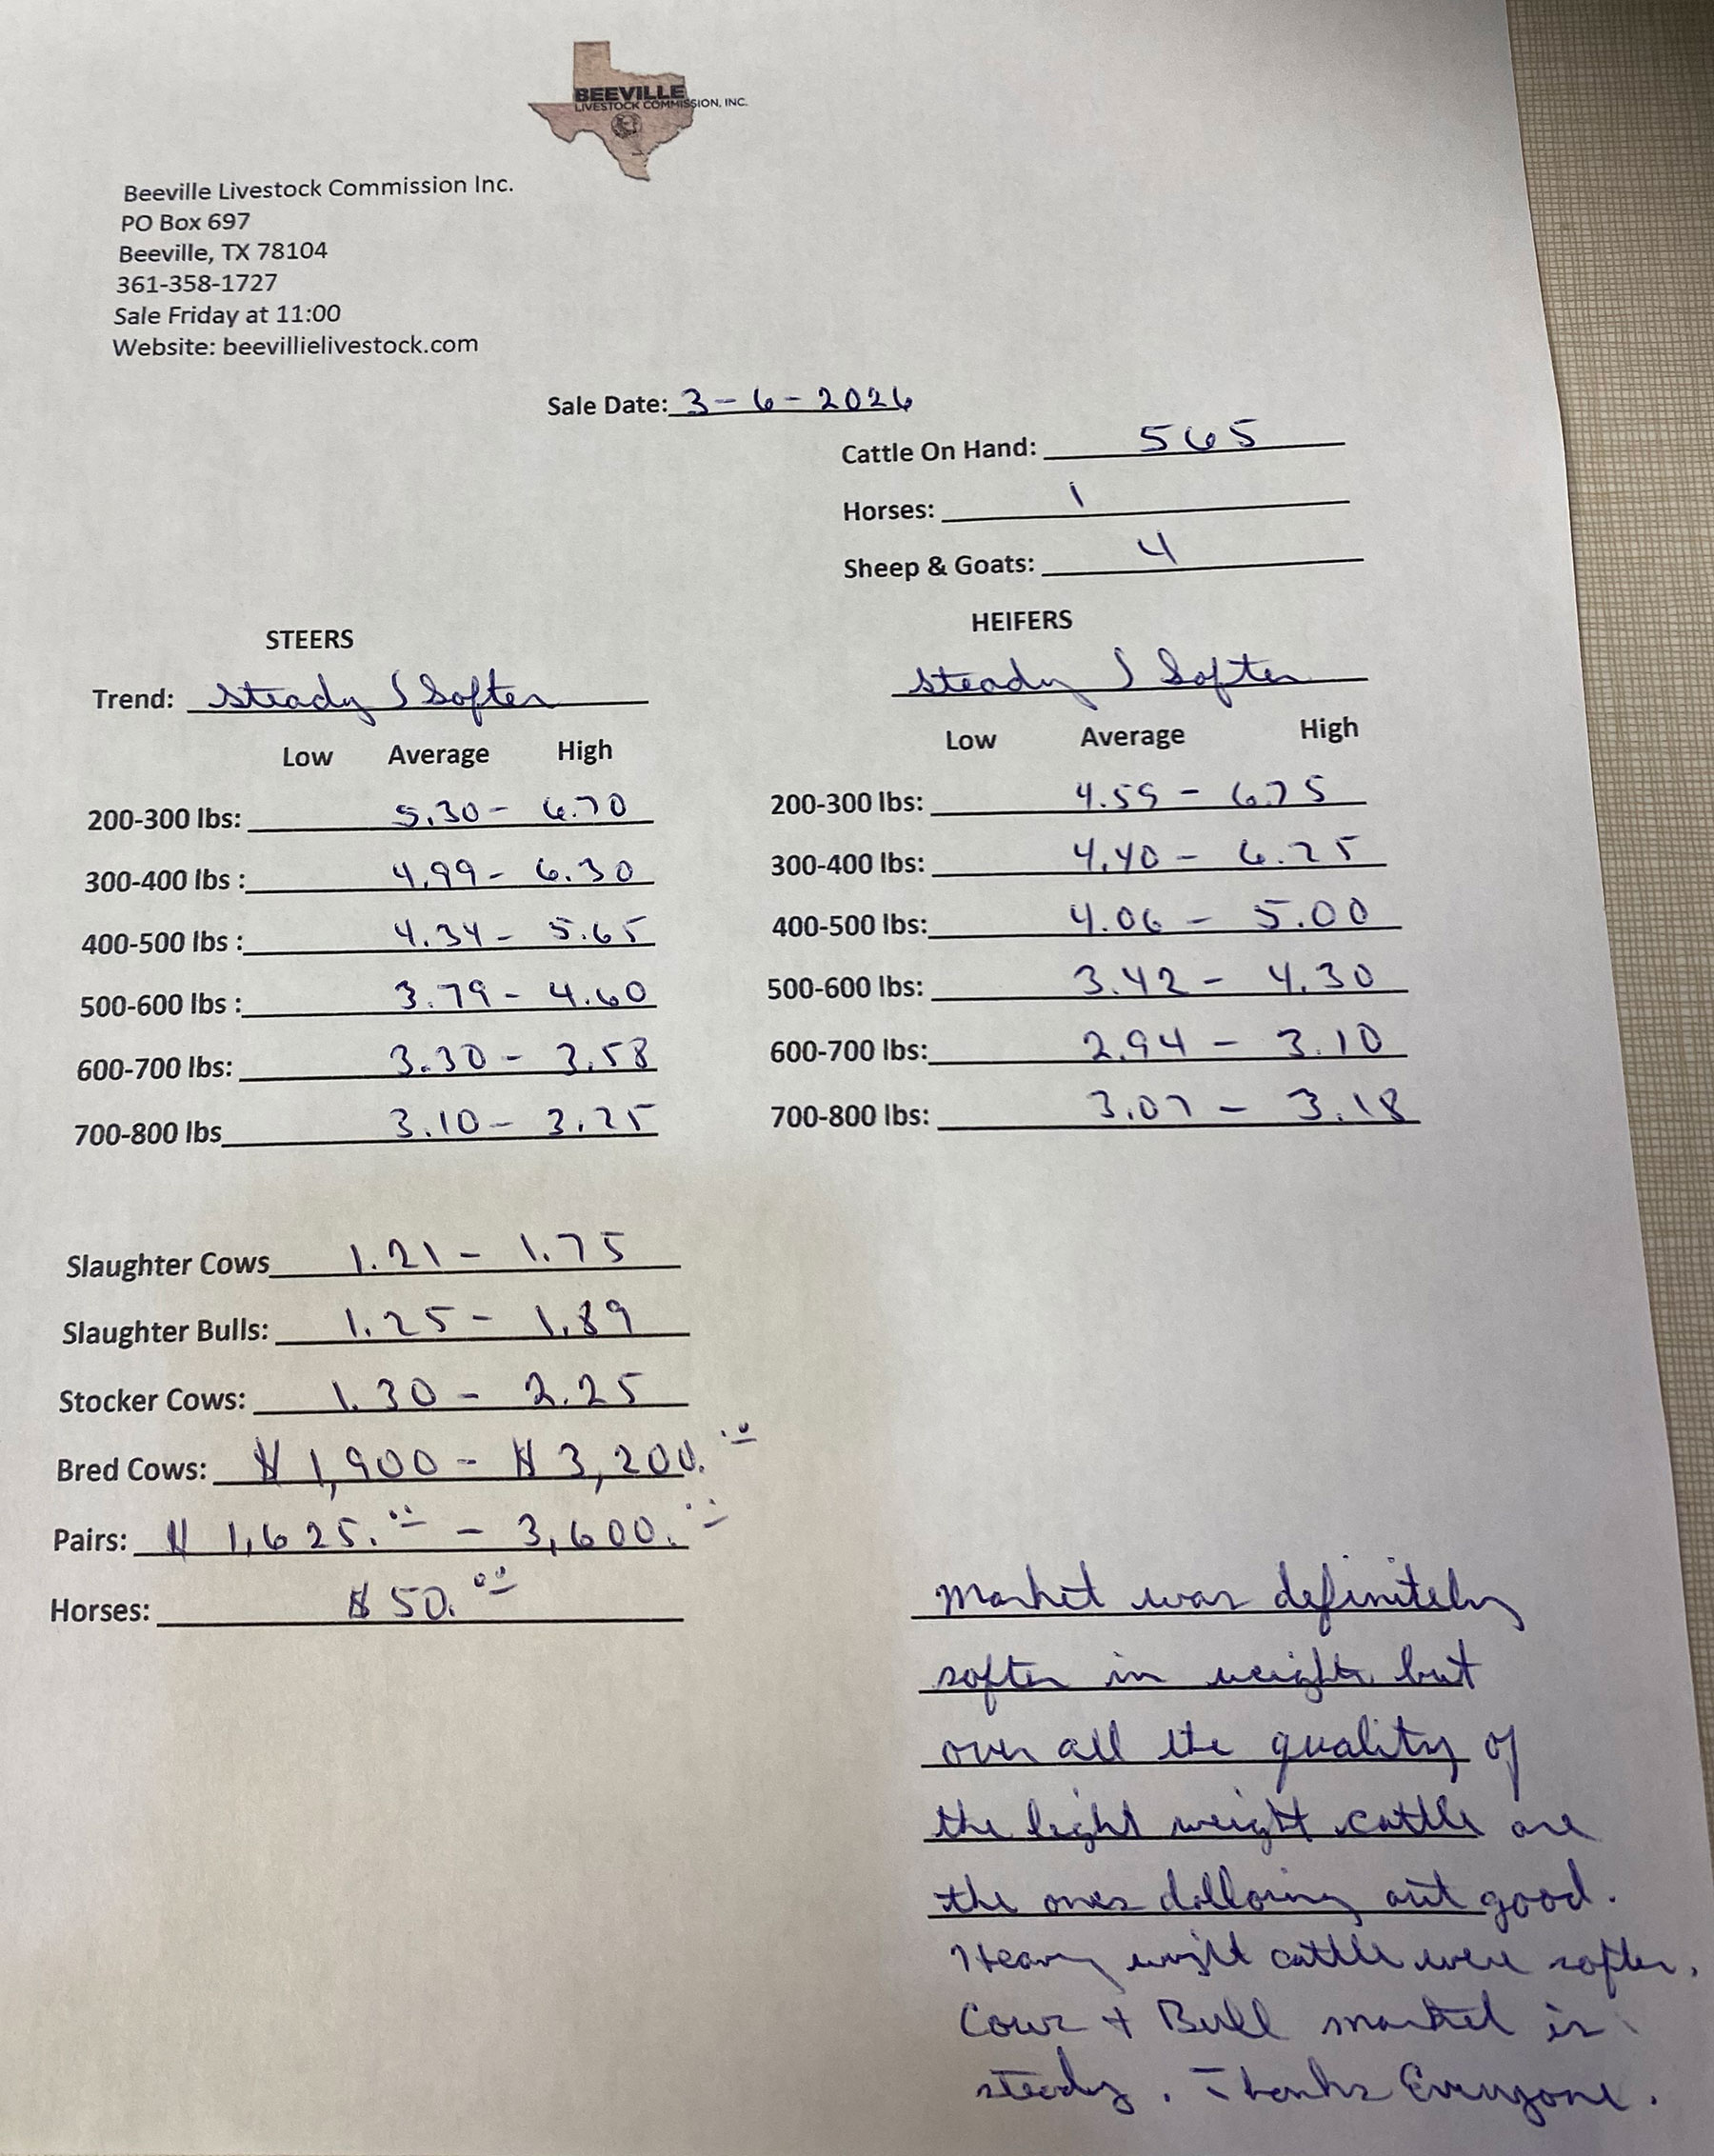 BEEVILLE
LIVESTOCK COMMISSION, INC.
Beeville Livestock Commission Inc.
PO Box 697
Beeville, TX 78104
361-358-1727
Sale Friday at 11:00
Website: beevillielivestock.com
Sale Date: 3-6-2026
Cattle On Hand: 565
Horses: 1
Sheep & Goats: 4
STEERS
Trend: Steady / Softer
Low Average High
200-300 lbs: 5.30 - 6.70
300-400 lbs : 4.99 - 6.30
400-500 lbs : 4.34 - 5.65
500-600 lbs : 3.79 - 4.60
600-700 lbs: 3.30 - 3.58
700-800 lbs 3.10 - 3.25
HEIFERS
Steady / Softer
Low Average High
200-300 lbs: 4.59 - 6.75
300-400 lbs: 4.40 - 6.25
400-500 lbs: 4.06 - 5.00
500-600 lbs: 3.42 - 4.30
600-700 lbs: 2.94 - 3.10
700-800 lbs: 3.07 - 3.18
Slaughter Cows 1.21 - 1.75
Slaughter Bulls: 1.25 - 1.89
Stocker Cows: 1.30 - 2.25
Bred Cows: $ 1,900 - $ 3,200.00
Pairs: $ 1,625.00 - 3,600.00
Horses: $ 50.00
Market was definitely
softer in weight but
over all the quality of
the light weight cattle are
the ones dollaring out good.
Heavy weight cattle were softer.
Cows + Bull market is
steady. Thanks Everyone.